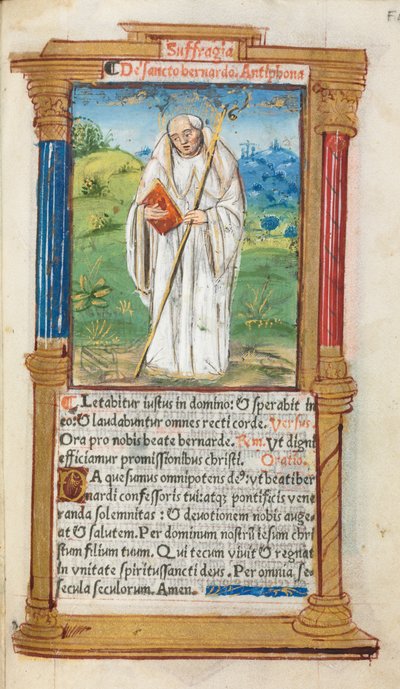 Suffragia
De sancto bernardo. Antiphona
Letabitur iustus in domino: & sperabit in
eo: & laudabuntur omnes recti corde. Versus.
Ora pro nobis beate bernarde. Rm. Vt digni
efficiamur promissionibus christi. Oratio.
DA quesumus omnipotens deꝰ: vt beati ber
nardi confessoris tui: atqꝫ pontificis vene
randa solemnitas: & deuotionem nobis auge-
at & salutem. Per dominum nostrū iesum chri
stum filium tuum. Qui tecum viuit & regnat
in vnitate spiritussancti deus. Per omnia se-
cula seculorum. Amen.